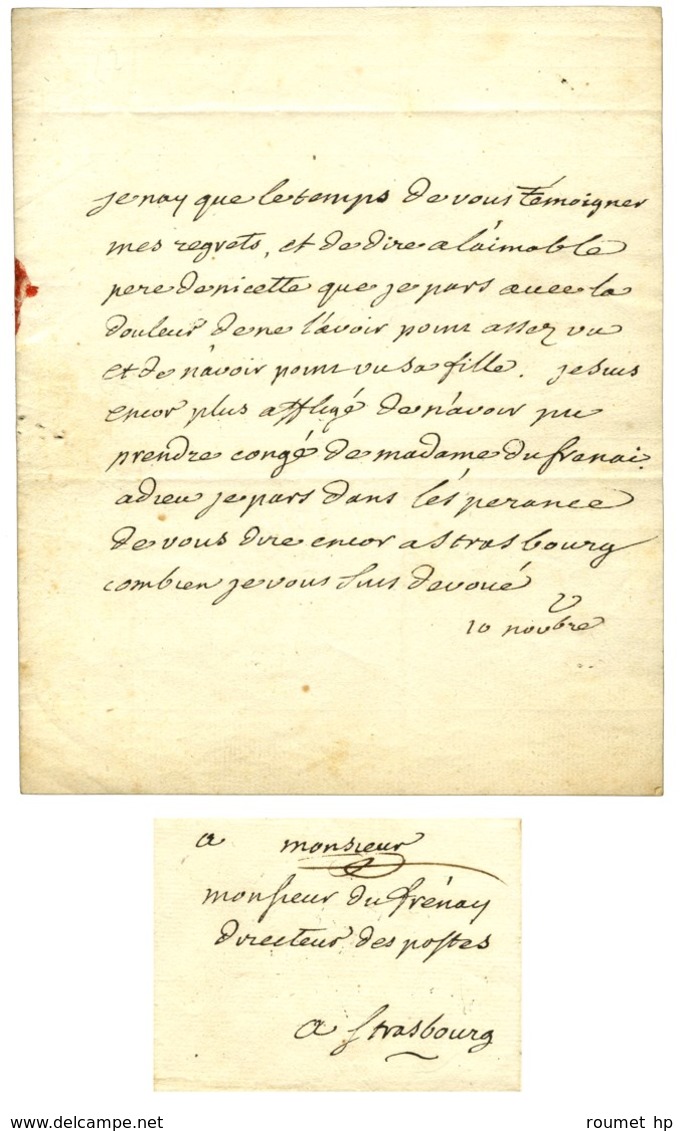 je nay que le temps de vous témoigner
mes regrets, et de dire a laimable
pere de nicette que je pars avec la
douleur de ne l'avoir point assez vu
et de n'avoir point vu sa fille. je suis
encor plus affligé de n'avoir pu
prendre congé de madame du frenai.
adieu je pars dans lésperance
de vous dire encor a strasbourg
combien je vous suis devoué
V
10 novbre
a monsieur
monsieur du frénay
directeur des postes
a strasbourg
roumet hp